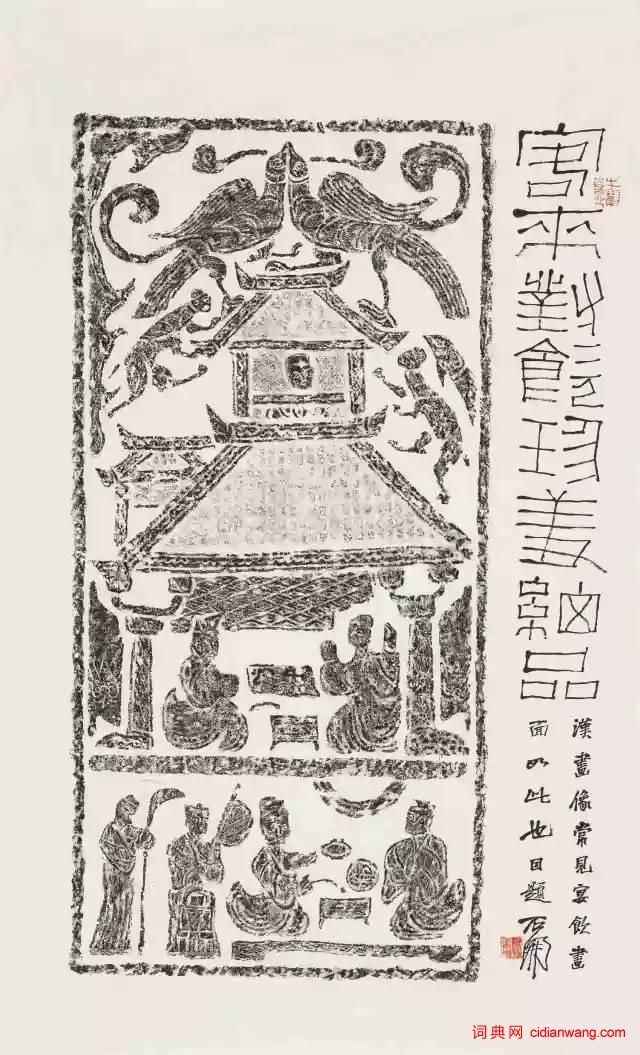 客來對飲珍羞細品
漢畫像常見宴飲畫
面如此也因題石開
词典网 cidianwang.com